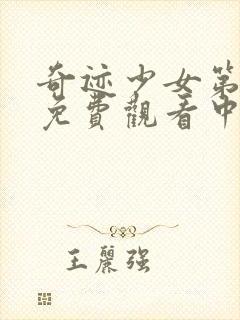 奇迹少女第
免費觀看中
王麗强